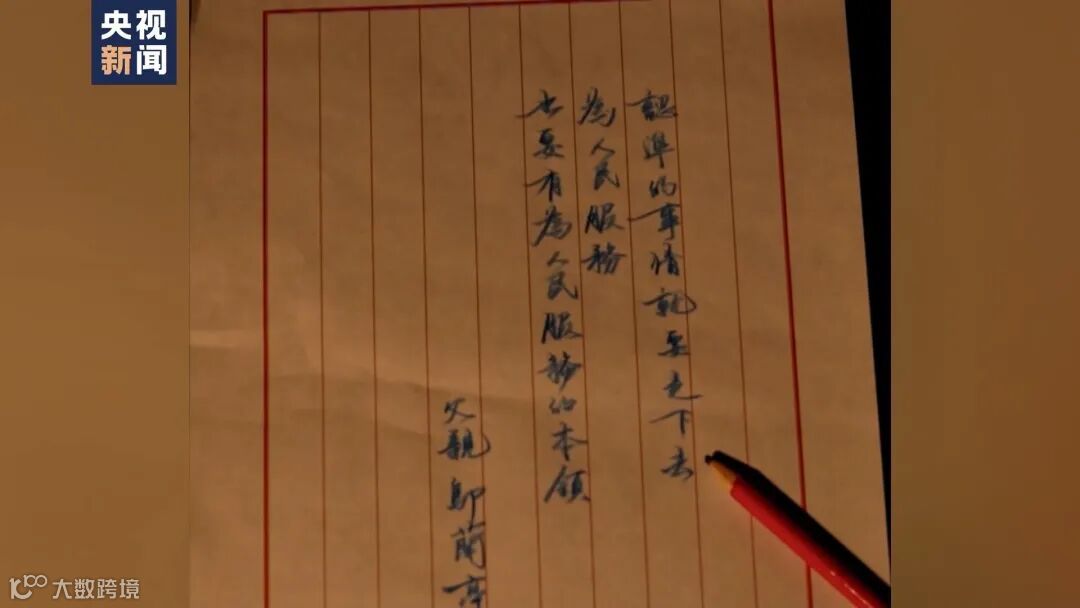 央视
新闻
認準的事情就要走下去
為人民服務
也要有為人民服務的本領
父親 鄔蘭亭
大数跨境